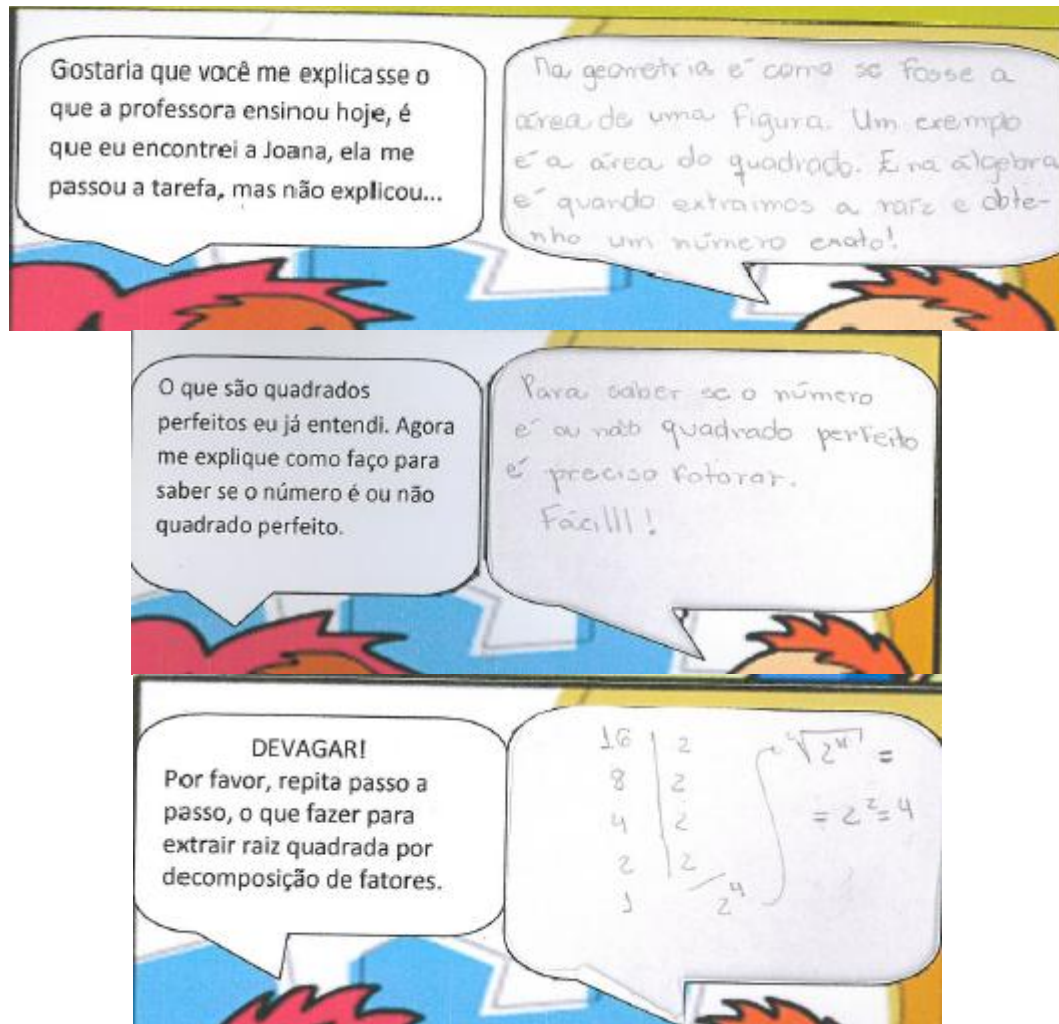 Gostaria que você me explicasse o
que a professora ensinou hoje, é
que eu encontrei a Joana, ela me
passou a tarefa, mas não explicou...
Na geometria é como se fosse a
área de uma figura. Um exemplo
é a área do quadrado. E na álgebra
é quando extraimos a raiz e obte-
nho um número exato!
O que são quadrados
perfeitos eu já entendi. Agora
me explique como faço para
saber se o número é ou não
quadrado perfeito.
Para saber se o número
é ou não quadrado perfeito
é preciso fatorar.
Fácilll!
DEVAGAR!
Por favor, repita passo a
passo, o que fazer para
extrair raiz quadrada por
decomposição de fatores.
16 | 2
8 | 2
4 | 2
2 | 2
1 2⁴
√2⁴ =
= 2² = 4